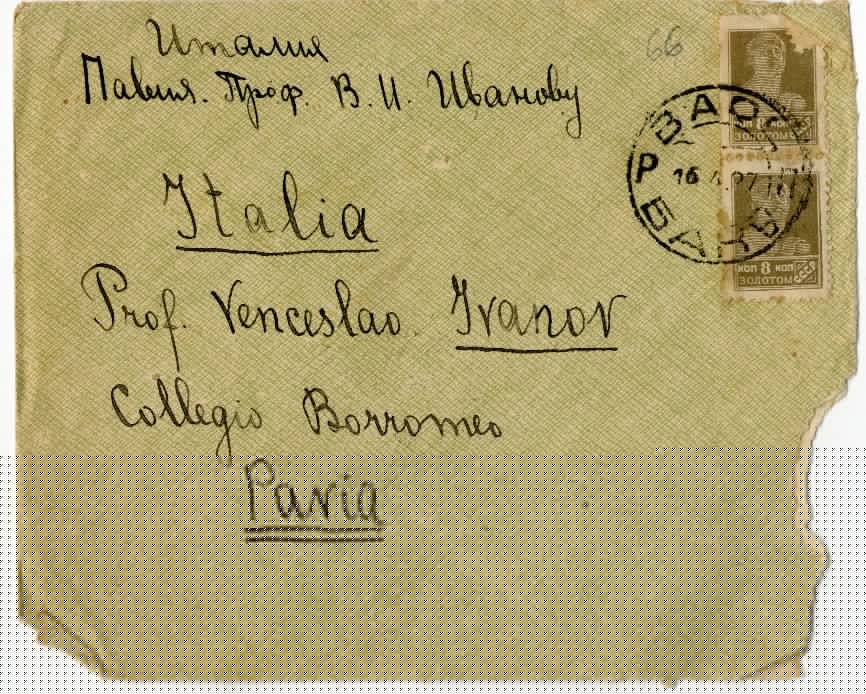 Италия
66
Павия. Проф. В. И. Иванову
Italia
Prof. Venceslao Ivanov
Collegio Borromeo
Pavia
Р
16
БАКЫ
коп 8 коп
ЗОЛОТОМ
коп 8 коп
ЗОЛОТОМ
СССР